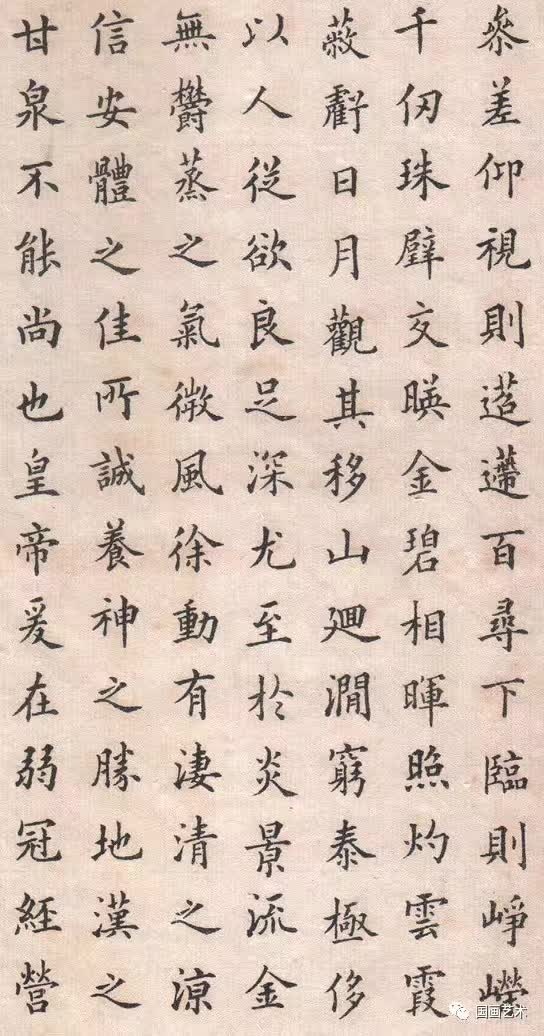 叅差仰視則迢遰百尋下臨則崢嶸
千仞珠璧交暎金碧相暉照灼雲霞
蔽虧日月觀其移山廻澗窮泰極侈
以人從欲良足深尤至於炎景流金
無鬱蒸之氣微風徐動有淒清之涼
信安體之佳所誠養神之勝地漢之
甘泉不能尚也皇帝爰在弱冠經營
国画艺术